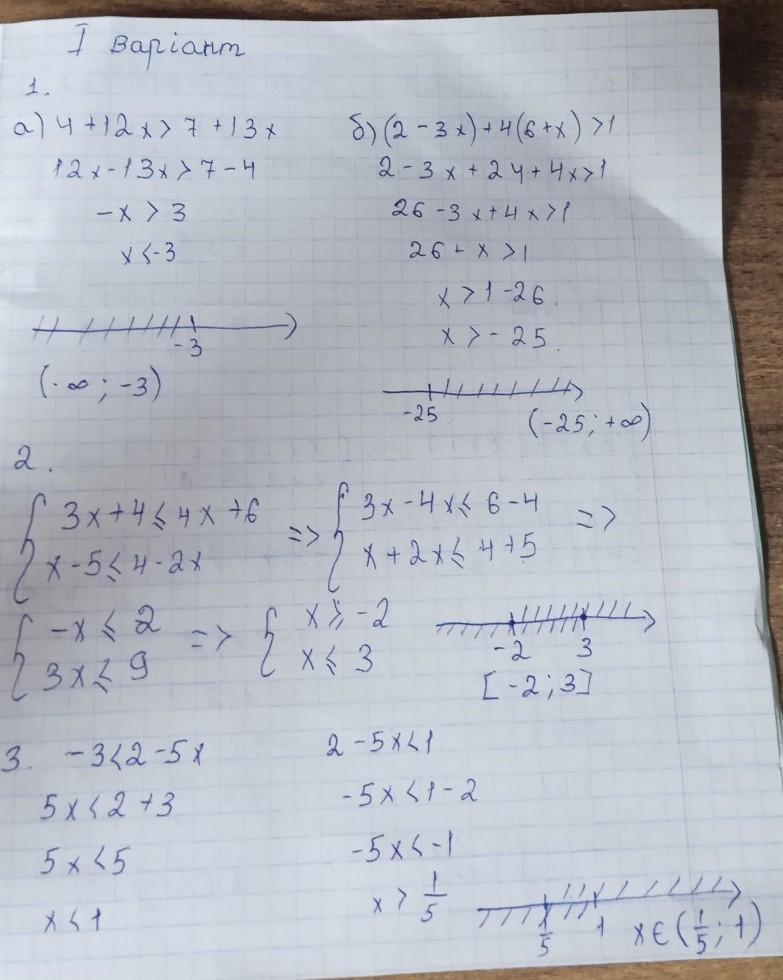 I варіант
1.
а) 4 + 12x > 7 + 13x
12x - 13x > 7 - 4
-x > 3
x < -3
-3
(-∞; -3)
б) (2 - 3x) + 4(6 + x) > 1
2 - 3x + 24 + 4x > 1
26 - 3x + 4x > 1
26 + x > 1
x > 1 - 26
x > -25
-25
(-25; +∞)
2.
{ 3x + 4 ≤ 4x + 6 => { 3x - 4x ≤ 6 - 4 =>
x - 5 ≤ 4 - 2x x + 2x ≤ 4 + 5
{ -x ≤ 2 => { x ≥ -2
3x ≤ 9 x ≤ 3
-2 3
[-2; 3]
3. -3 < 2 - 5x
5x < 2 + 3
5x < 5
x < 1
2 - 5x < 1
-5x < 1 - 2
-5x < -1
x > 1/5
1/5 1
x ∈ (1/5; 1)